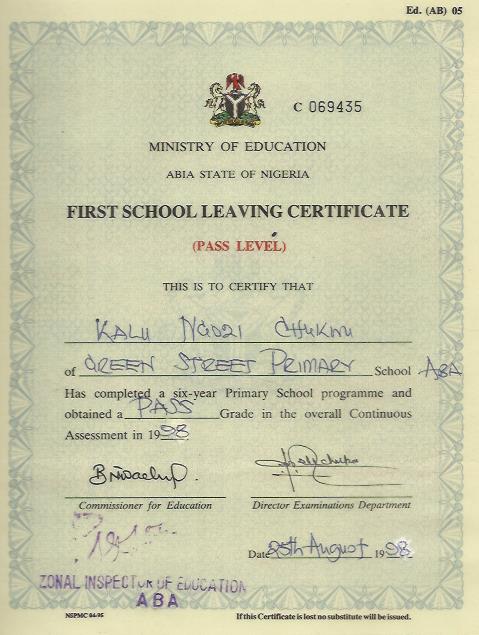 Ed. (AB) 05
C 069435
MINISTRY OF EDUCATION
ABIA STATE OF NIGERIA
FIRST SCHOOL LEAVING CERTIFICATE
(PASS LEVEL)
THIS IS TO CERTIFY THAT
KALU NGOZI CHUKWU
of GREEN STREET PRIMARY School ABA
Has completed a six-year Primary School programme and
obtained a PASS Grade in the overall Continuous
Assessment in 1998
Commissioner for Education
Director Examinations Department
Date 25th August 1998
ZONAL INSPECTOR OF EDUCATION
ABA
NSPMC 04-95
If this Certificate is lost no substitute will be issued.